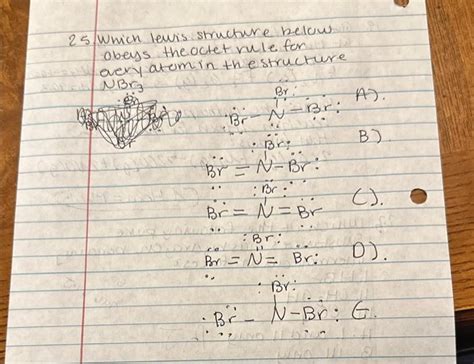 25. Which lewis structure below
obeys the octet rule for
every atom in the structure
NBr3
:Br:
:Br - N - Br: A).
:Br: B)
Br = N - Br:
:Br: C).
Br = N = Br
:Br: D).
Br = N = Br:
:Br:
:Br - N - Br: E.